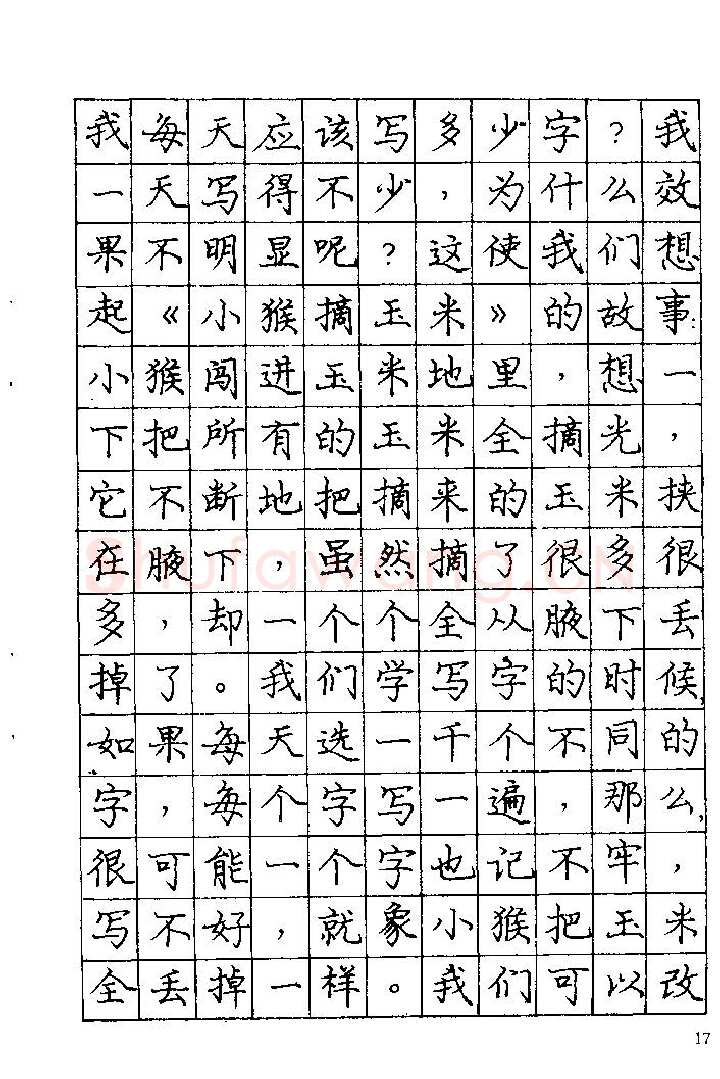 我每天应该写多少字？我
一天写得不少，为什么效
果不明显呢？这使我们想
起《小猴摘玉米》的故事：
小猴闯进玉米地里，想一
下把所有的玉米全摘光，
它不断地把摘来的玉米挟
在腋下，虽然摘了很多很
多，却一个个全从腋下丢
掉了。我们学写字的时候，
如果每天选一千个不同的
字，每个字写一遍，那么，
很可能一个字也记不牢，
写不好，就象小猴把玉米
全丢掉一样。我们可以改
17
Shufawang.CN